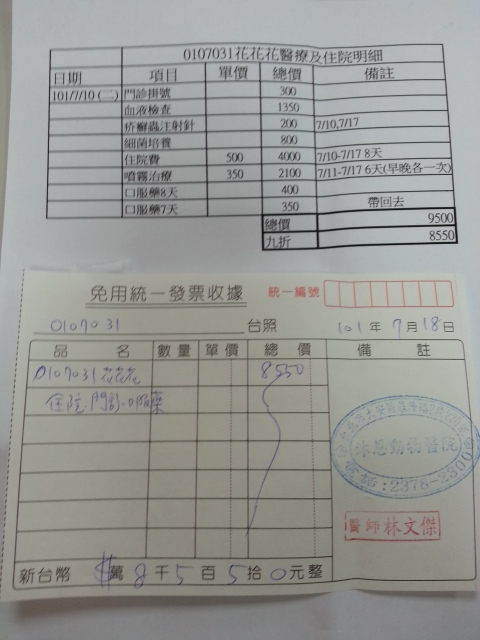 0107031花花花醫療及住院明細
日期 項目 單價 總價 備註
101/7/10 (二) 門診掛號 300
血液檢查 1350
疥癬蟲注射針 200 7/10,7/17
細菌培養 800
住院費 500 4000 7/10-7/17 8天
噴霧治療 350 2100 7/11-7/17 6天(早晚各一次)
口服藥8天 400
口服藥7天 350 帶回去
總價 9500
九折 8550
免用統一發票收據 統一編號
0107031 台照 101年7月18日
品名 數量 單價 總價 備註
0107031花花花 8550
住院.門診.口服藥
沐恩動物醫院
電話:2378-2300
醫師林文傑
新台幣 萬8千5百5拾0元整